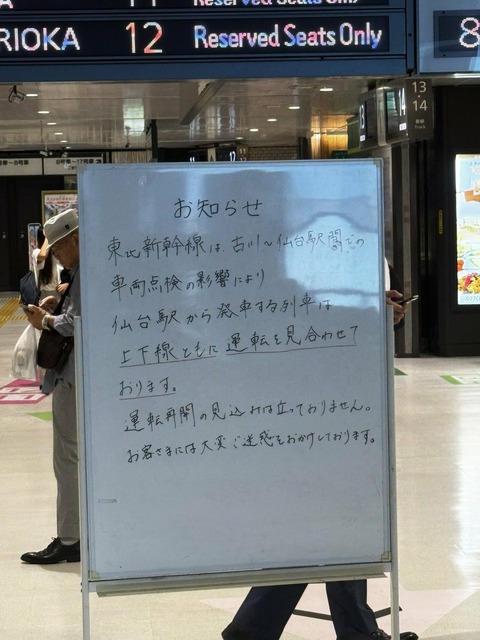 Reserved Seats Only
RIOKA 12 Reserved Seats Only 8
13
14
Track
お知らせ
東北新幹線は、古川～仙台駅間での
車両点検の影響により
仙台駅から発車する列車は
上下線ともに運転を見合わせて
おります。
運転再開の見込みは立っておりません。
お客さまには大変ご迷惑をおかけしております。